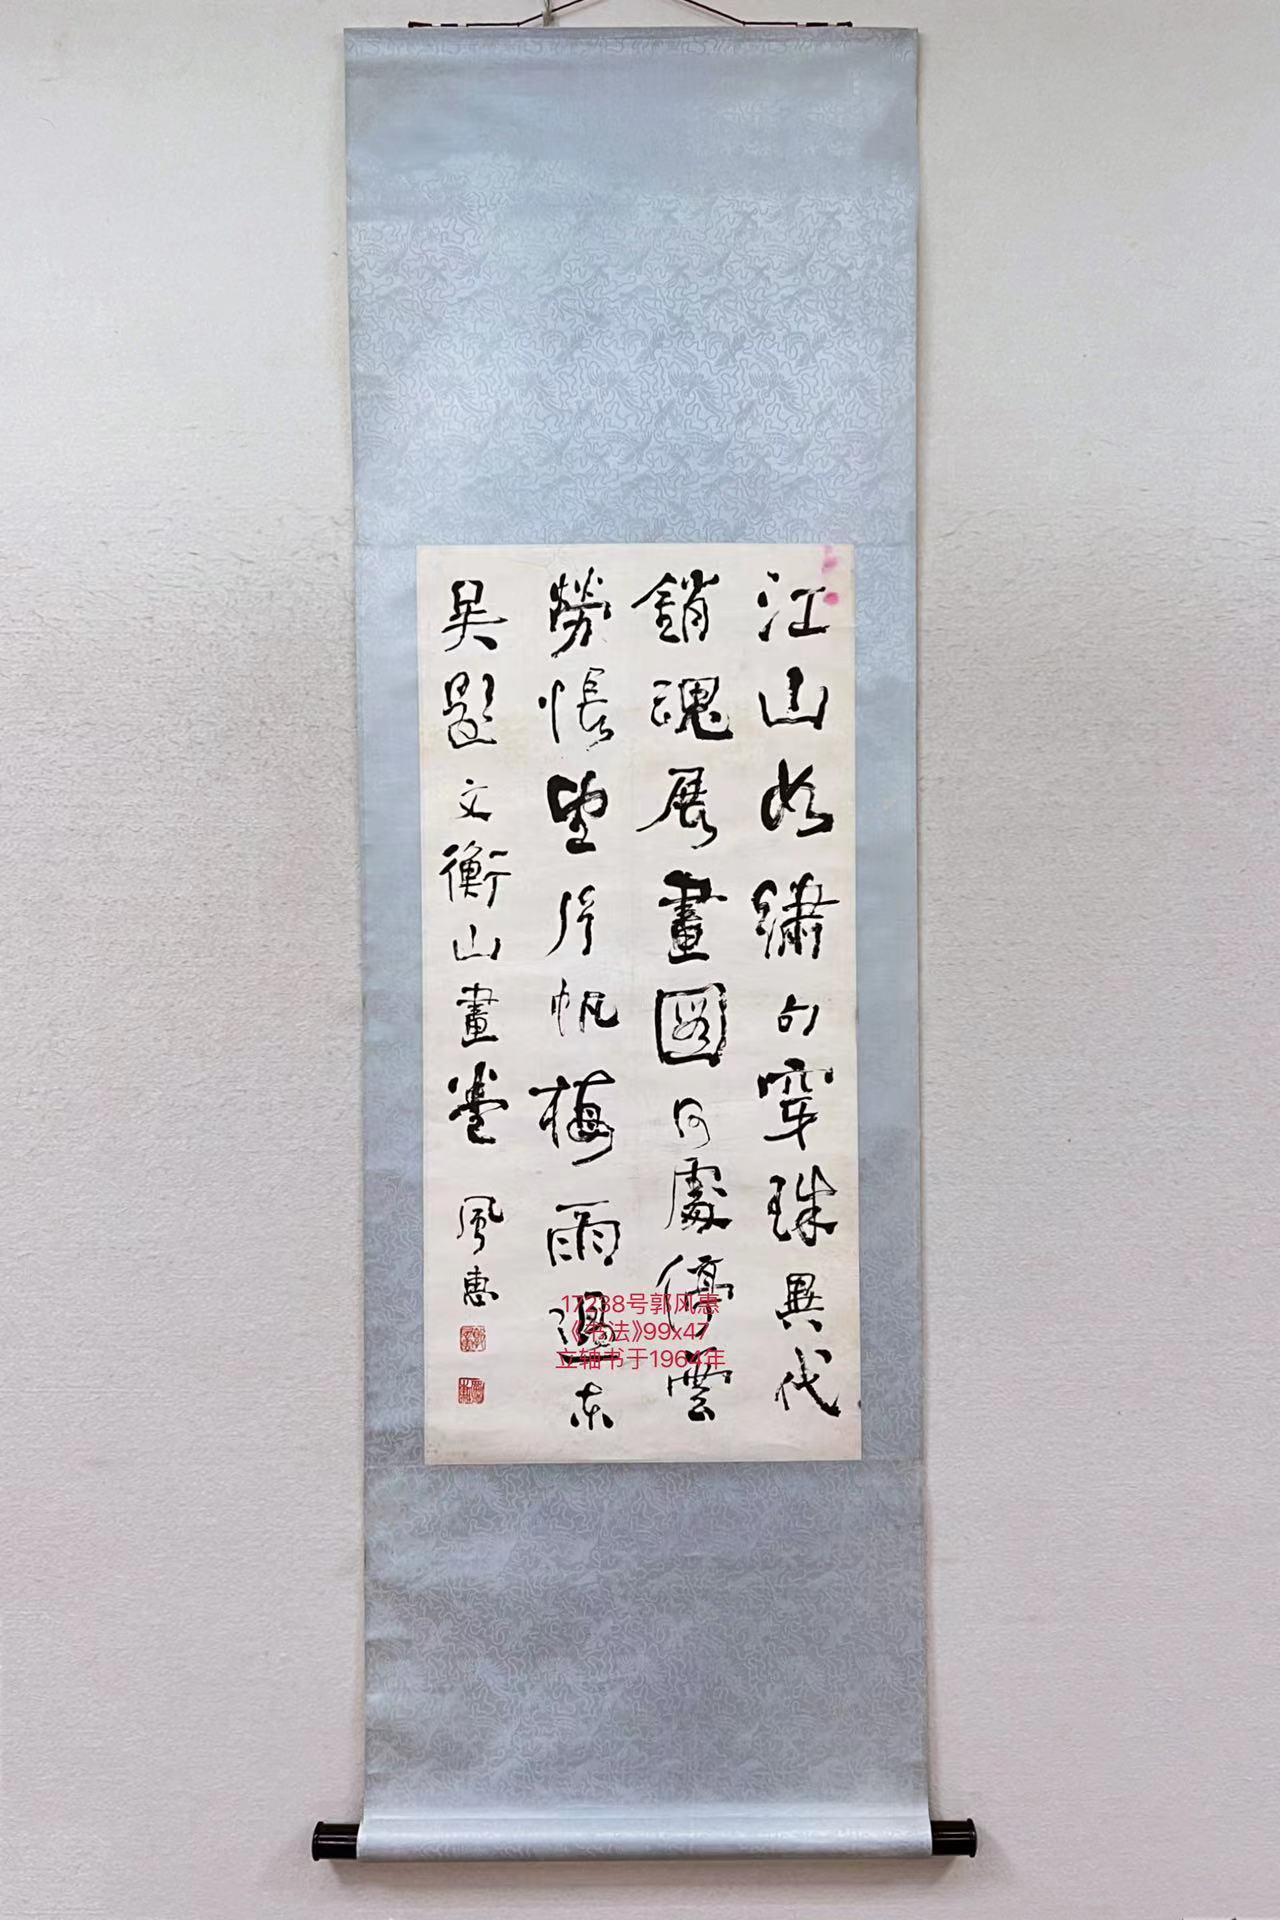 江山如繡句穿珠異代
銷魂展畫圖何處停雲
勞悵望片帆梅雨過東
吴題文衡山畫卷
風惠
17238号郭风惠
《书法》99x47
立轴书于1964年